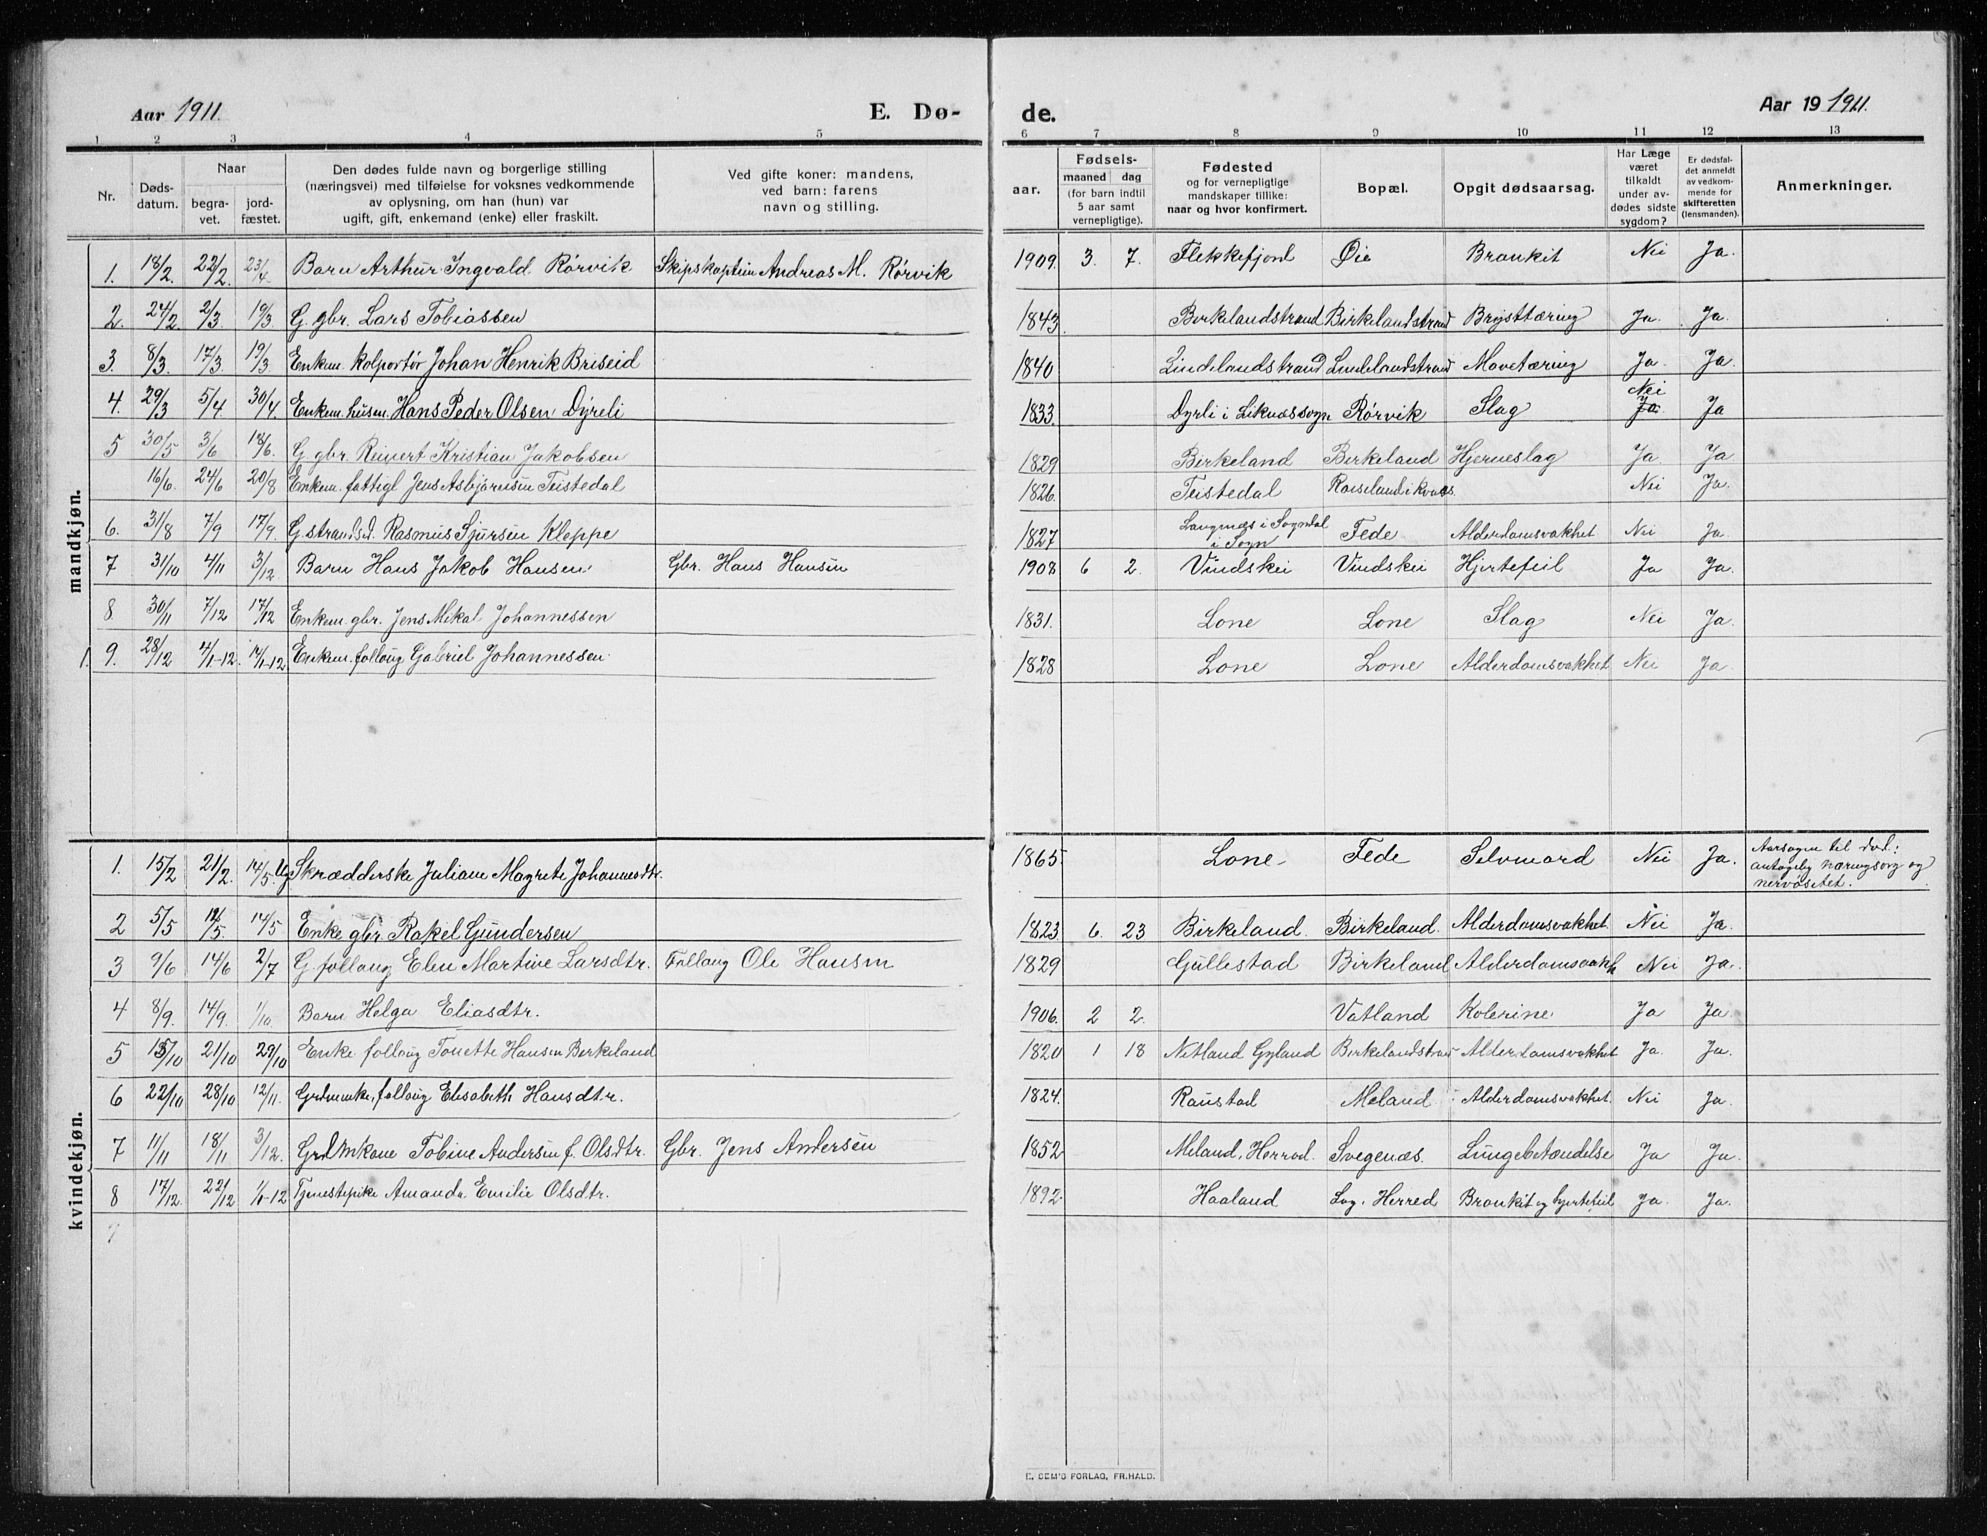 Aar 1911. E. Dø-
de. Aar 19 1911.
1 2 3 4 5
6 7 8 9 10 11 12 13
Nr. Døds-datum. Naar begra-vet. jord-fæstet. Den dødes fulde navn og borgerlige stilling (næringsvei) med tilføielse for voksnes vedkommende av oplysning, om han (hun) var ugift, gift, enkemand (enke) eller fraskilt. Ved gifte koner: mandens, ved barn: farens navn og stilling.
aar. Fødsels- maaned dag (for barn indtil 5 aar samt vernepligtige). Fødested og for vernepligtige mandskaper tillike: naar og hvor konfirmert. Bopæl. Opgit dødsaarsag. Har Læge været tilkaldt under av-dødes sidste sygdom? Er dødsfal-det anmeldt av vedkom-mende for skifteretten (lensmanden). Anmerkninger.
mandkjøn.
1. 18/2 22/2. 23/4 Barn Arthur Ingvald Rørvik Skipskaptein Andreas M. Rørvik 1909. 3. 7. Flekkefjord Øie Bronkit Nei Ja.
2. 24/2 2/3 19/3 G. gbr. Lars Tobiassen 1843. Birkelandstrand Birkelandstrand Brysttæring Ja. Ja.
3. 8/3. 17/3. 19/3 Enkem. kolportør Johan Henrik Briseid 1840 Lindelandstrand Lindelandstrand Mavetæring Ja. Ja.
4. 29/3 5/4 30/4 Enkem. husm. Hans Peder Olsen Dyrli 1833. Dyrli i Liknæs sogn Rørvik Slag Nei Ja Ja
5 30/5 3/6 18/6. G. gbr. Reinert Kristian Jakobsen 1829 Birkeland Birkeland Hjerneslag Ja Ja
16/6. 24/6 20/8 Enkem. fattigl Jens Asbjørnsen Teistedal 1826. Teistedal Roiseland i Kvaas Nei Ja.
6. 31/8 7/9 17/9. G. strandsd. Rasmus Sjursen Kleppe 1827 Langnæs i Sogndal i Sogn Fede Alderdomsvakhet Nei Ja.
7 31/10 4/11 3/12. Barn Hans Jakob Hansen Gbr. Hans Hansen 1908 6 2. Vindskei Vindskei Hjertefeil Ja Ja.
8 30/11 7/12 17/12 Enkem. gbr. Jens Mikal Johannessen 1831. Lone Lone Slag Nei Ja.
1. 9. 28/12 4/1-12. 14/1-12 Enkem. follaug Gabriel Johannessen 1828 Lone Lone Alderdomsvakhet Nei Ja.
kvindekjøn.
1. 15/2 21/2. 14/5. Ug Skrædderske Juliane Magrete Johannesdtr. 1865. Lone Fede Selvmord Nei Ja. Aarsagen til død: antagelig næringssorg og nervøsitet.
2 5/5 12/5. 14/5 Enke gbr. Rakel Gundersen 1823 6. 23 Birkeland. Birkeland. Alderdomsvakhet Nei Ja.
3 9/6 14/6 2/7 G. follaug Elen Martine Larsdtr. Follaug Ole Hansen 1829 Gullestad Birkeland Alderdomsvakh Nei Ja.
4 8/9. 14/9. 1/10. Barn Helga Eliasdtr. 1906. 2 2. Vatland Kolerine Ja Ja.
5 15/10 21/10 29/10 Enke follaug Tonette Hansen Birkeland 1820 1 18 Netland Gyland Birkelandstrand Alderdomsvakhet Ja. Ja.
6 22/10 28/10 12/11. Grdmenke, follaug Elisabeth Hansdtr. 1824. Raustad Meland Alderdomsvakhet. Nei Ja.
7 11/11 18/11 3/12. Grdmkone Tobine Andersen f. Olsdtr. Gbr. Jens Andersen 1852 Meland, Herred. Svegenæs. Lungebetændelse Ja Ja.
8 17/12. 22/12 1/1-12 Tjenestepike Amanda Emilie Olsdtr. 1892. Haaland Log, Herred Bronkit og hjertefeil Ja. Ja.
9
E. SEM'S FORLAG, FR.HALD.